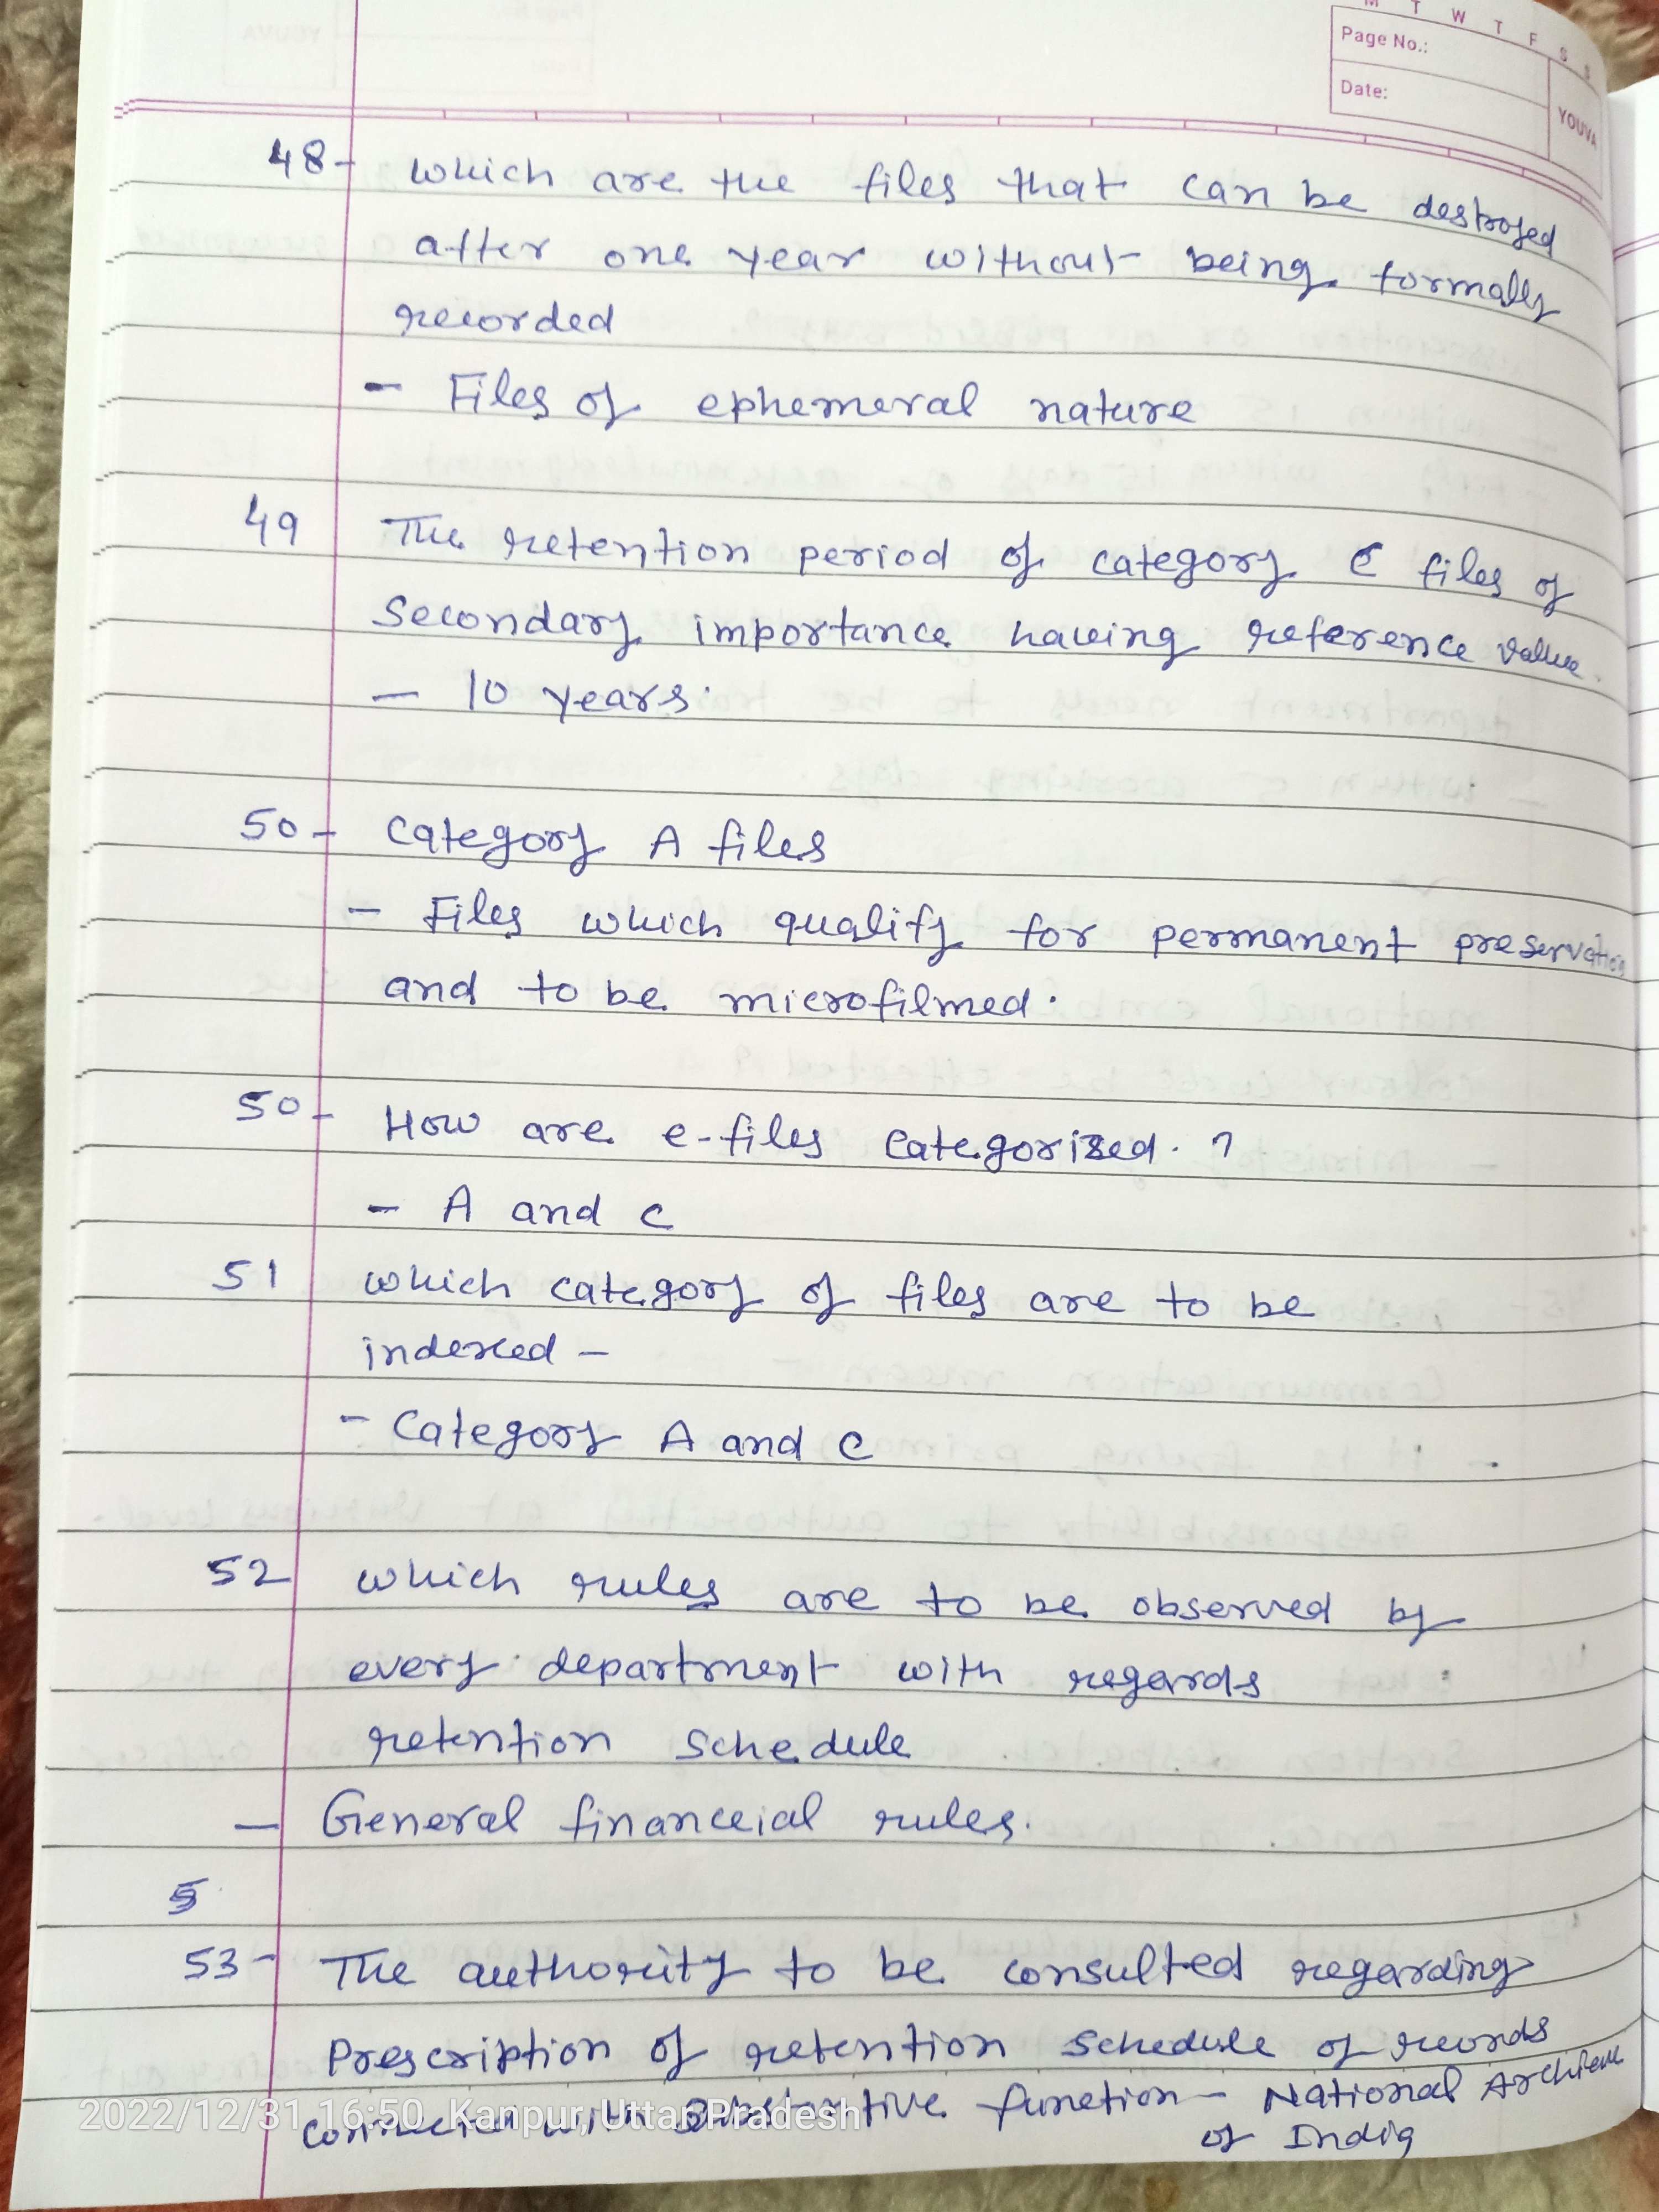 M T W T F S S
Page No.:
Date:
YOUVA
48- which are the files that can be destroyed
after one year without being formally
recorded
- Files of ephemeral nature
49 The retention period of category C files of
Secondary importance having reference value.
- 10 years.
50- Category A files
- Files which qualify for permanent preservation
and to be microfilmed.
50- How are e-files categorized. ?
- A and C
51 which category of files are to be
indexed -
- Category A and C
52 which rules are to be observed by
every department with regards
retention schedule
- General financeial rules.
5
53- The authority to be consulted regarding
Prescription of retention schedule of records
connected with substantive function - National Archieve
of India
2022/12/31 16:50, Kanpur, Uttar Pradesh